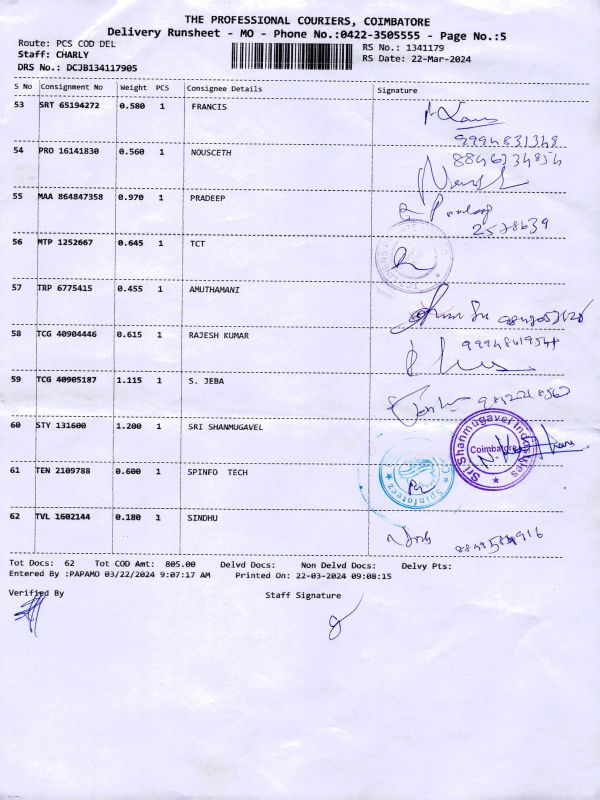 THE PROFESSIONAL COURIERS, COIMBATORE
Delivery Runsheet - MO - Phone No.:0422-3505555 - Page No.:5
Route: PCS COD DEL
RS No.: 1341179
Staff: CHARLY
RS Date: 22-Mar-2024
DRS No.: DCJB134117905
S No Consignment No Weight PCS Consignee Details Signature
53 SRT 65194272 0.580 1 FRANCIS
54 PRO 16141830 0.560 1 NOUSCETH
55 MAA 864847358 0.970 1 PRADEEP
2578639
56 MTP 1252667 0.645 1 TCT
57 TRP 6775415 0.455 1 AMUTHAMANI
58 TCG 40904446 0.615 1 RAJESH KUMAR
59 TCG 40905187 1.115 1 S. JEBA
60 STY 131600 1.200 1 SRI SHANMUGAVEL
Sri Shanmugavel Industries
Coimbatore
61 TEN 2109788 0.600 1 SPINFO TECH
Spinfotecz
62 TVL 1602144 0.180 1 SINDHU
Tot Docs: 62 Tot COD Amt: 805.00 Delvd Docs: Non Delvd Docs: Delvy Pts:
Entered By :PAPAMO 03/22/2024 9:07:17 AM Printed On: 22-03-2024 09:08:15
Verified By Staff Signature